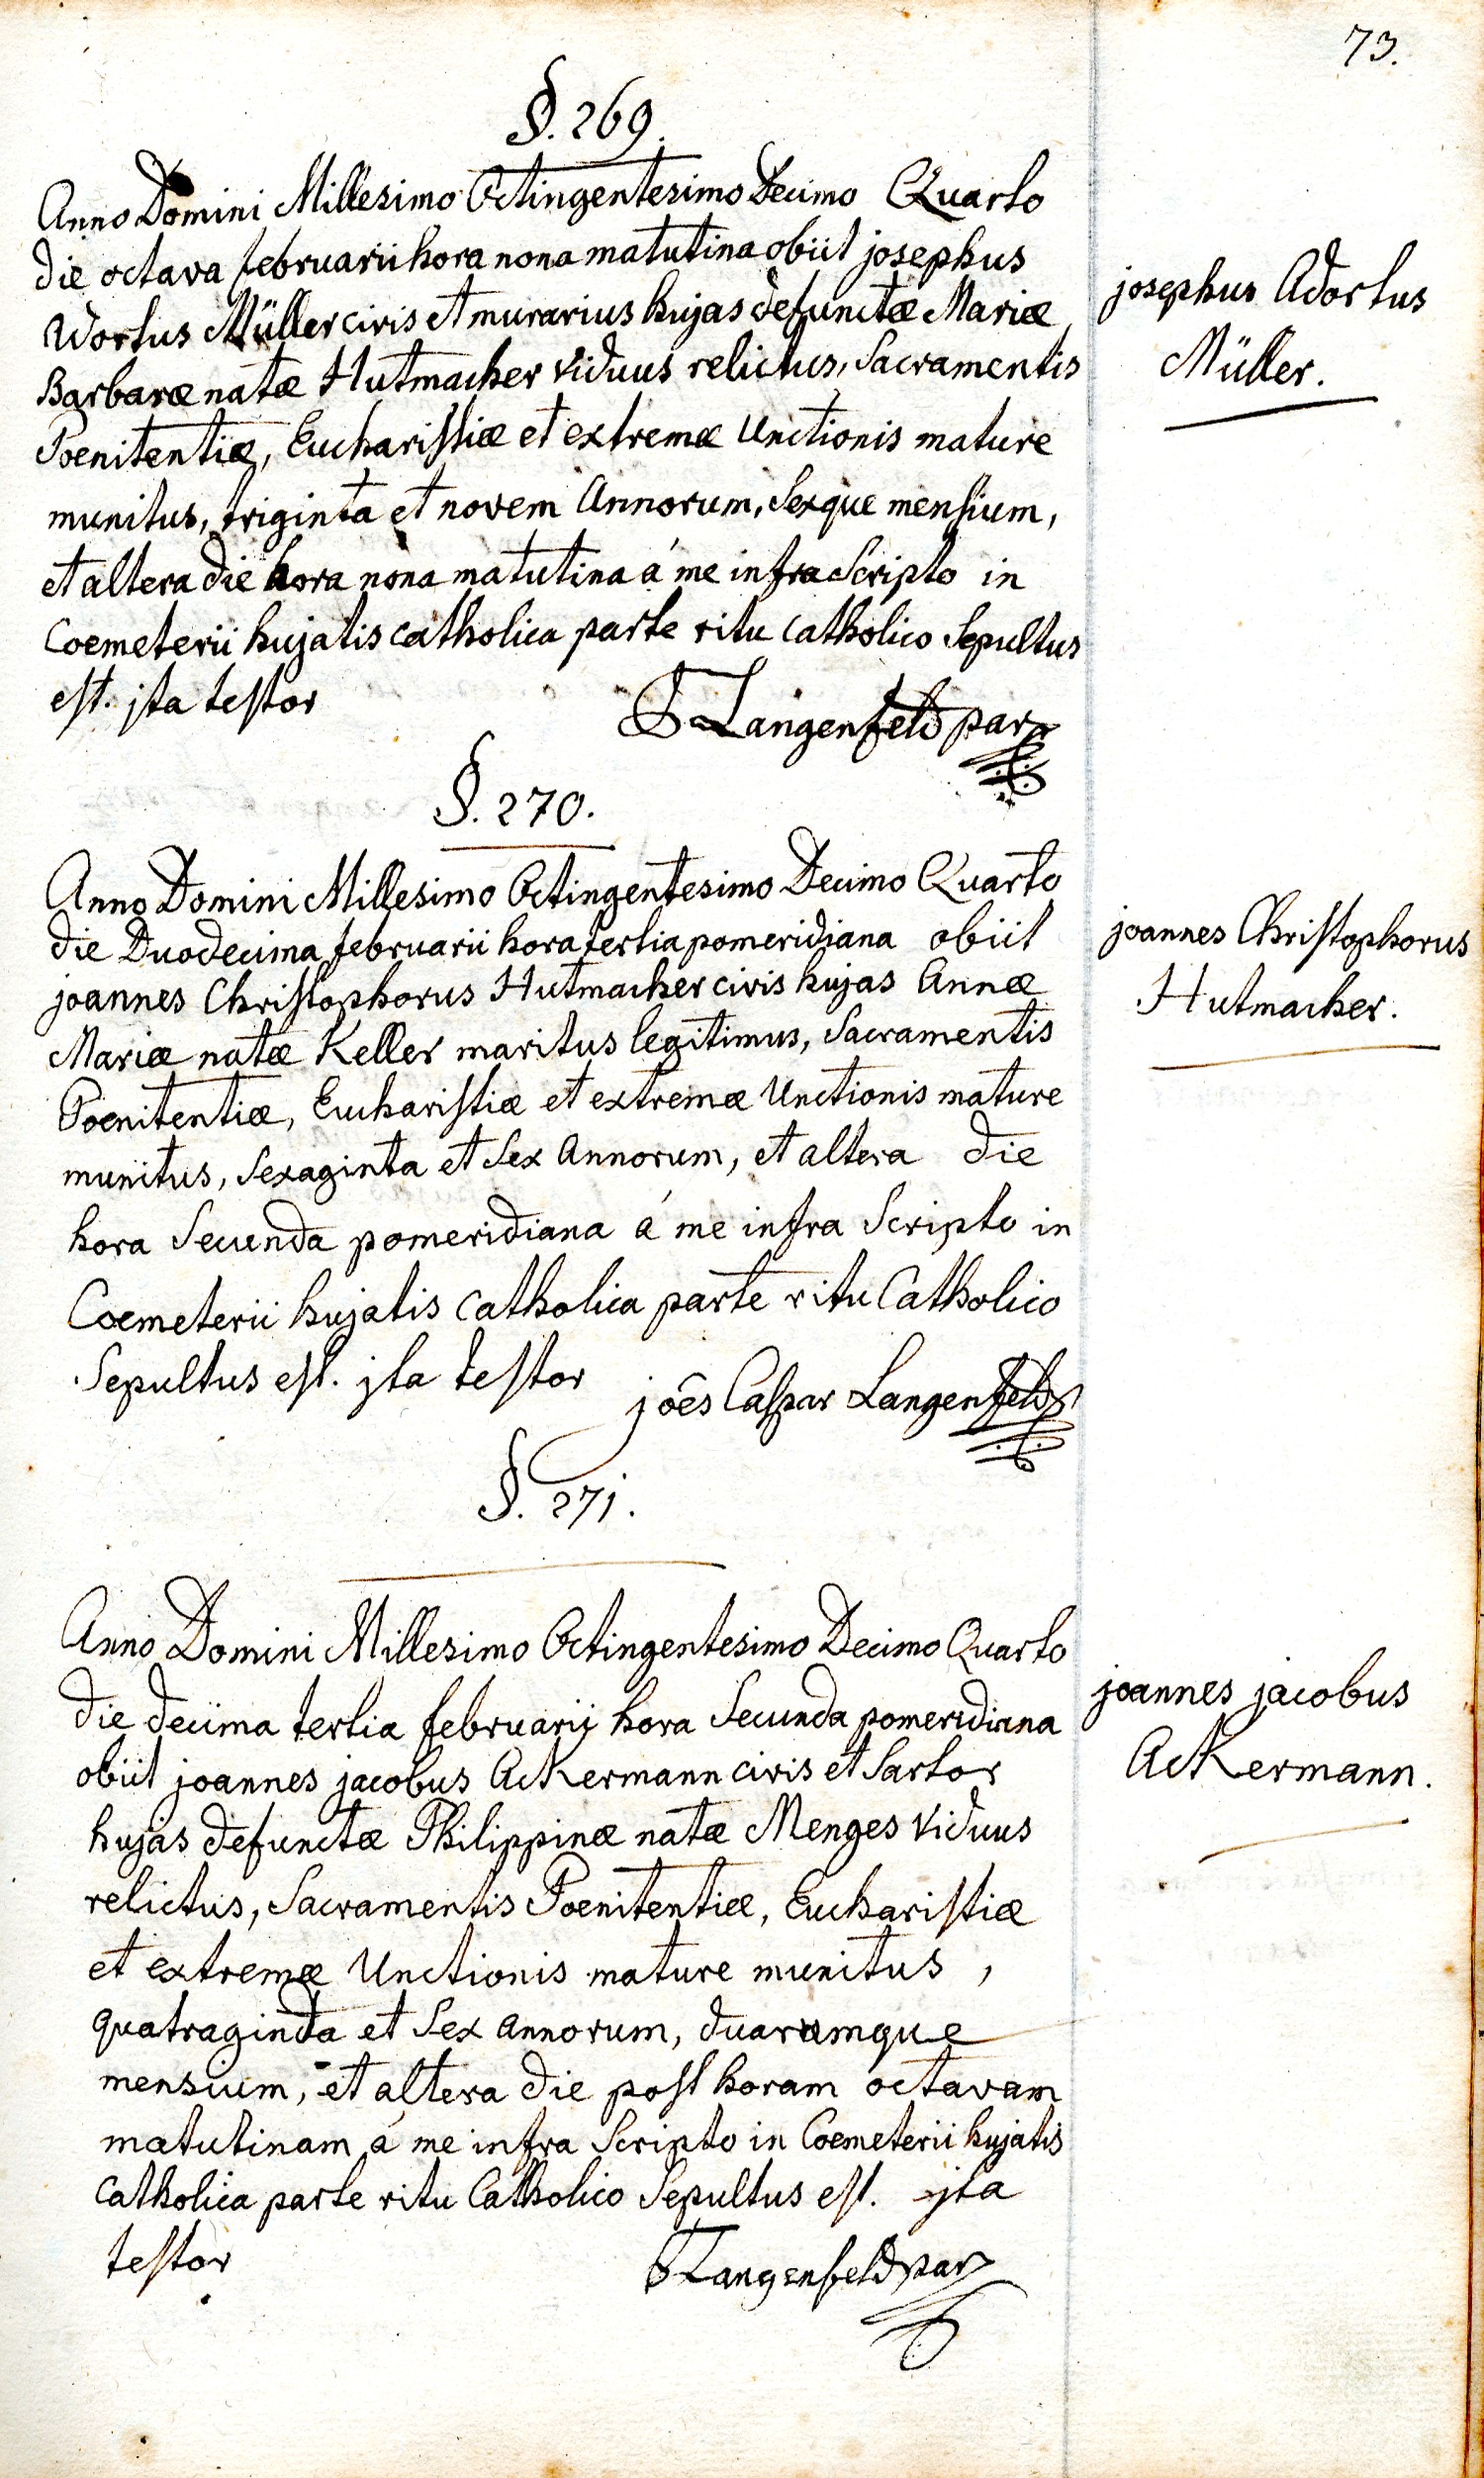 73.
§. 269.
Anno Domini Millesimo Octingentesimo Decimo Quarto
die octava februarii hora nona matutina obiit josephus
Adortus Müller civis et murarius hujas defunctæ Mariæ
Barbaræ natæ Hutmacher viduus relictus, Sacramentis
Poenitentiæ, Eucharistiæ et extremæ Unctionis mature
munitus, triginta et novem Annorum, Sexque mensium,
et altera die hora nona matutina á me infra Scripto in
Coemeterii hujatis catholica parte ritu catholico Sepultus
est. jta testor
Langenfeld par
josephus Adortus
Müller.
§. 270.
Anno Domini Millesimo Octingentesimo Decimo Quarto
die Duodecima februarii hora tertia pomeridiana obiit
joannes Christophorus Hutmacher civis hujas Annæ
Mariæ natæ Keller maritus legitimus, Sacramentis
Poenitentiæ, Eucharistiæ et extremæ Unctionis mature
munitus, Sexaginta et Sex Annorum, et altera die
hora Secunda pomeridiana á me infra Scripto in
Coemeterii hujatis catholica parte ritu Catholico
Sepultus est. jta testor
joês Caspar Langenfeld
joannes Christophorus
Hutmacher.
§. 271.
Anno Domini Millesimo Octingentesimo Decimo Quarto
die decima tertia februarij hora Secunda pomeridiana
obiit joannes jacobus Ackermann civis et Sartor
hujas defunctæ Philippinæ natæ Menges viduus
relictus, Sacramentis Poenitentiæ, Eucharistiæ
et extremæ Unctionis mature munitus,
quatraginta et Sex annorum, duarumque
mensium, et altera die post horam octavam
matutinam á me infra Scripto in Coemeterii hujatis
catholica parte ritu Catholico Sepultus est. jta
testor
Langenfeld par
joannes jacobus
Ackermann.